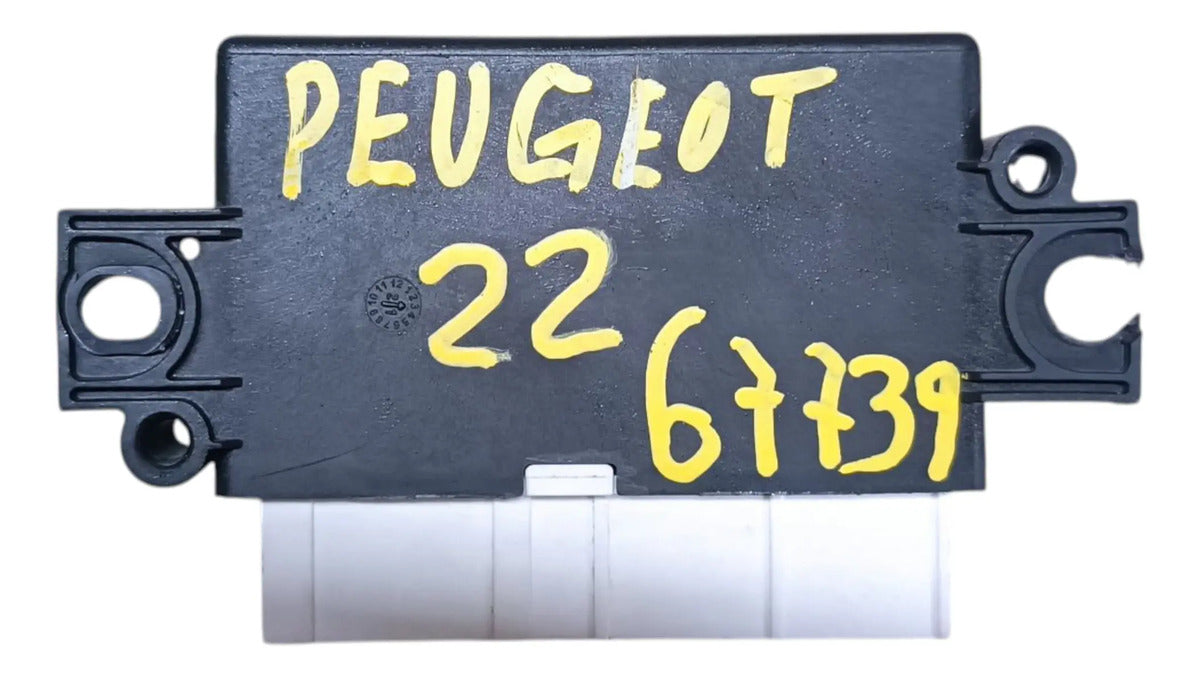 PEUGEOT
22
67739